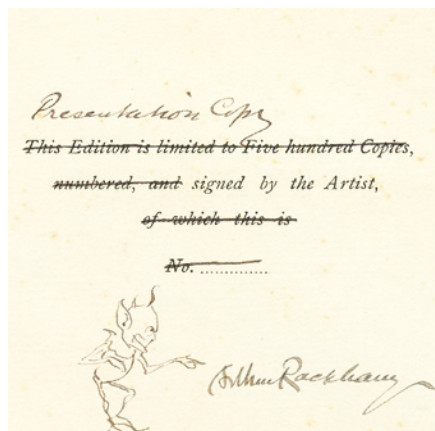 Presentation Copy
This Edition is limited to Five hundred Copies,
numbered, and signed by the Artist,
of which this is
No. ..............
Arthur Rackham